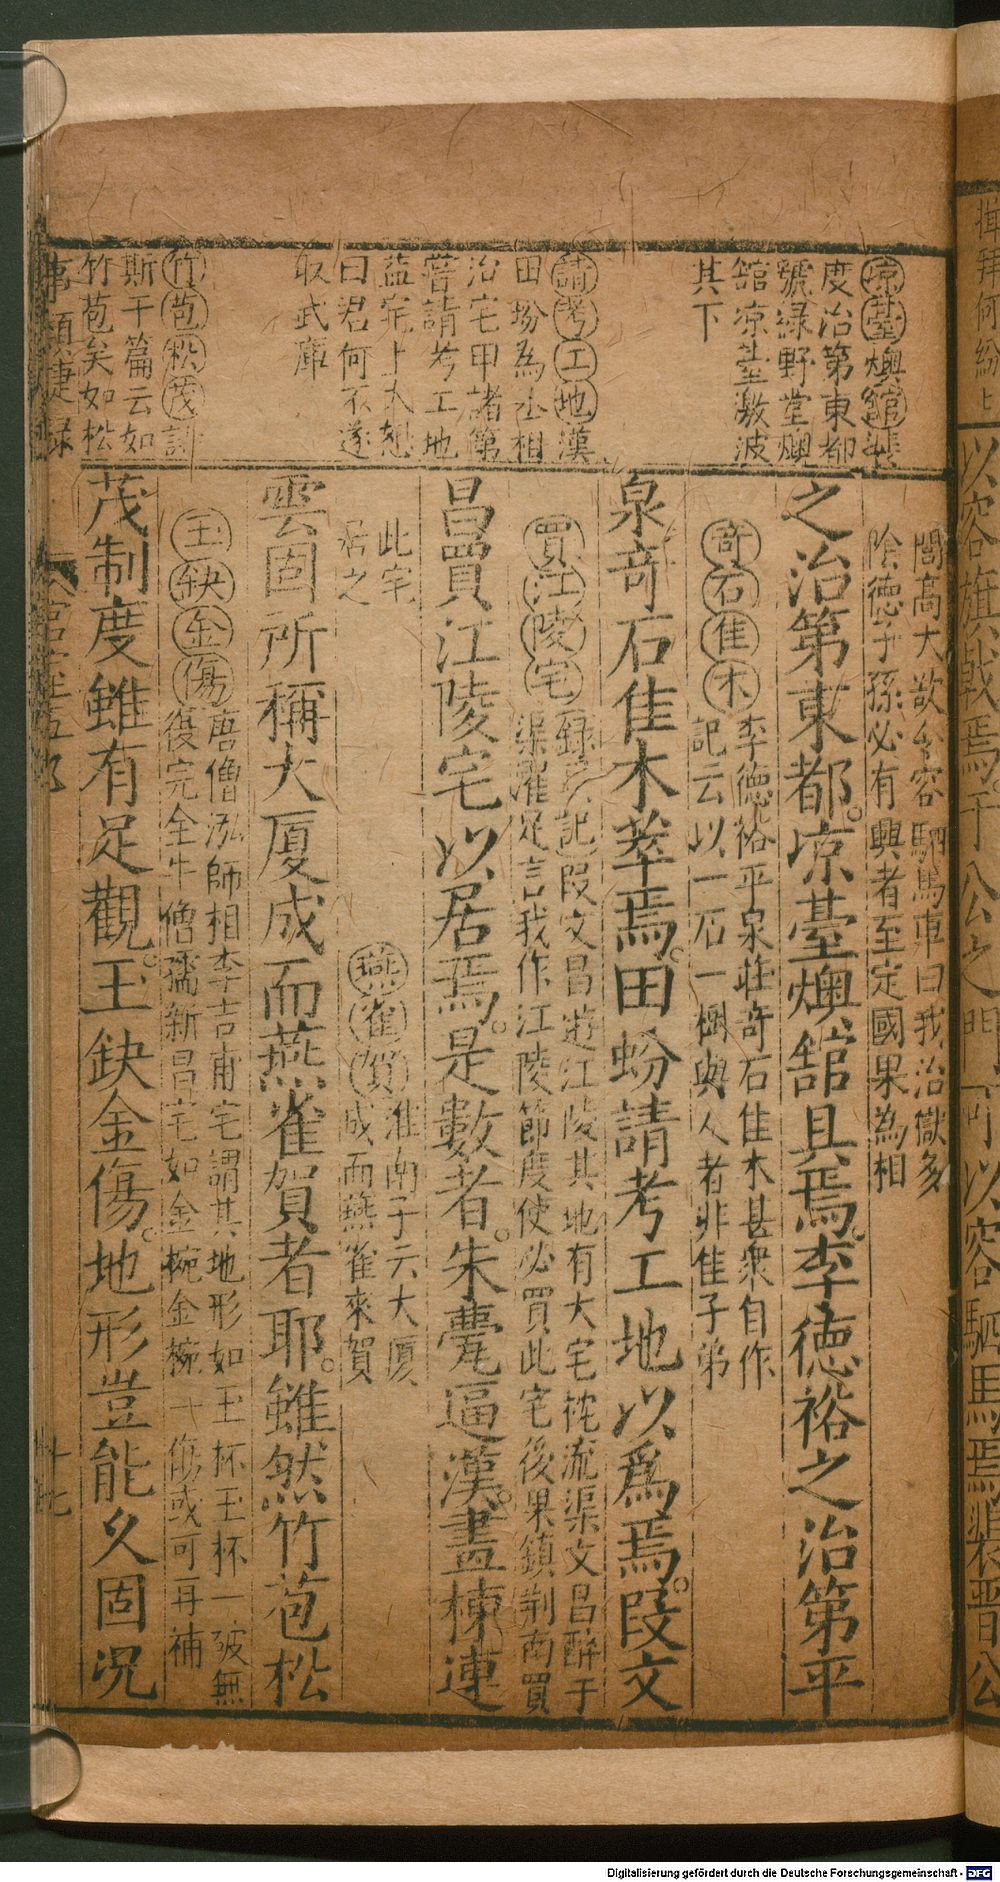 凉臺燠館裴
度治第東都
號緑野堂燠
舘凉臺激波
其下
請考工地漢
田蚡為丞相
治宅甲諸第
甞請考工地
益宅上大怒
曰君何不遂
取武庫
竹苞松茂詩
斯干篇云如
竹苞矣如松
閭高大欲令容駟馬車曰我治獄多
陰德子孫必有興者至定國果為相
之治第東都。凉臺燠舘具焉。李德裕之治第平
奇石佳木
李德裕平泉莊奇石佳木甚衆自作
記云以一石一樹與人者非佳子弟
泉奇石佳木萃焉。田蚡請考工地以爲焉。段文
買江陵宅
記段文昌遊江陵其地有大宅枕流渠文昌醉于
渠濯足言我作江陵節度使必買此宅後果鎮荆南買
昌買江陵宅以居焉。是數者。朱甍逼漢。畫棟連
此宅
居之
燕雀賀
淮南子云大厦
成而燕雀來賀
雲固所稱大厦成而燕雀賀者耶。雖然竹苞松
玉缺金傷
唐僧泓師相李吉甫宅謂其地形如玉杯玉杯一破無
復完全牛僧孺新昌宅如金椀金椀一傷或可再補
茂制度雖有足觀。玉鈌金傷。地形豈能久固况
事類捷録
十七
以容旗戟焉。于公之門可以容駟馬焉裴晉公
Digitalisierung gefördert durch die Deutsche Forschungsgemeinschaft - DFG